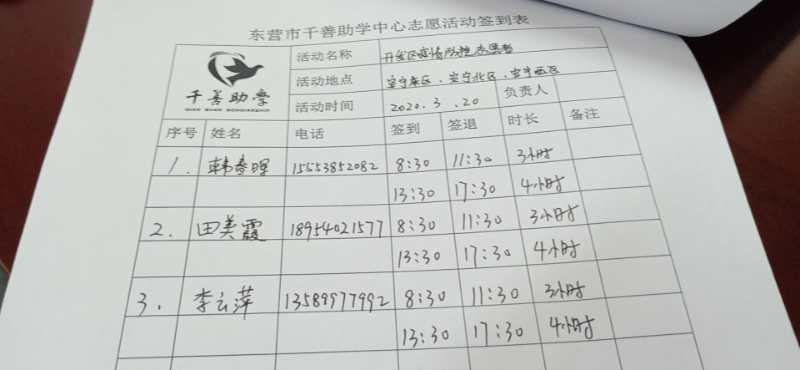 东营市千善助学中心志愿活动签到表
千善助学
活动名称 开发区疫情防控志愿者
活动地点 安宁东区、安宁北区、安宁西区
活动时间 2020.3.20 负责人
序号 姓名 电话 签到 签退 时长 备注
1. 韩春晖 15653852082 8:30 11:30 3小时
13:30 17:30 4小时
2. 田美霞 18954021577 8:30 11:30 3小时
13:30 17:30 4小时
3. 李云萍 13589977992 8:30 11:30 3小时
13:30 17:30 4小时